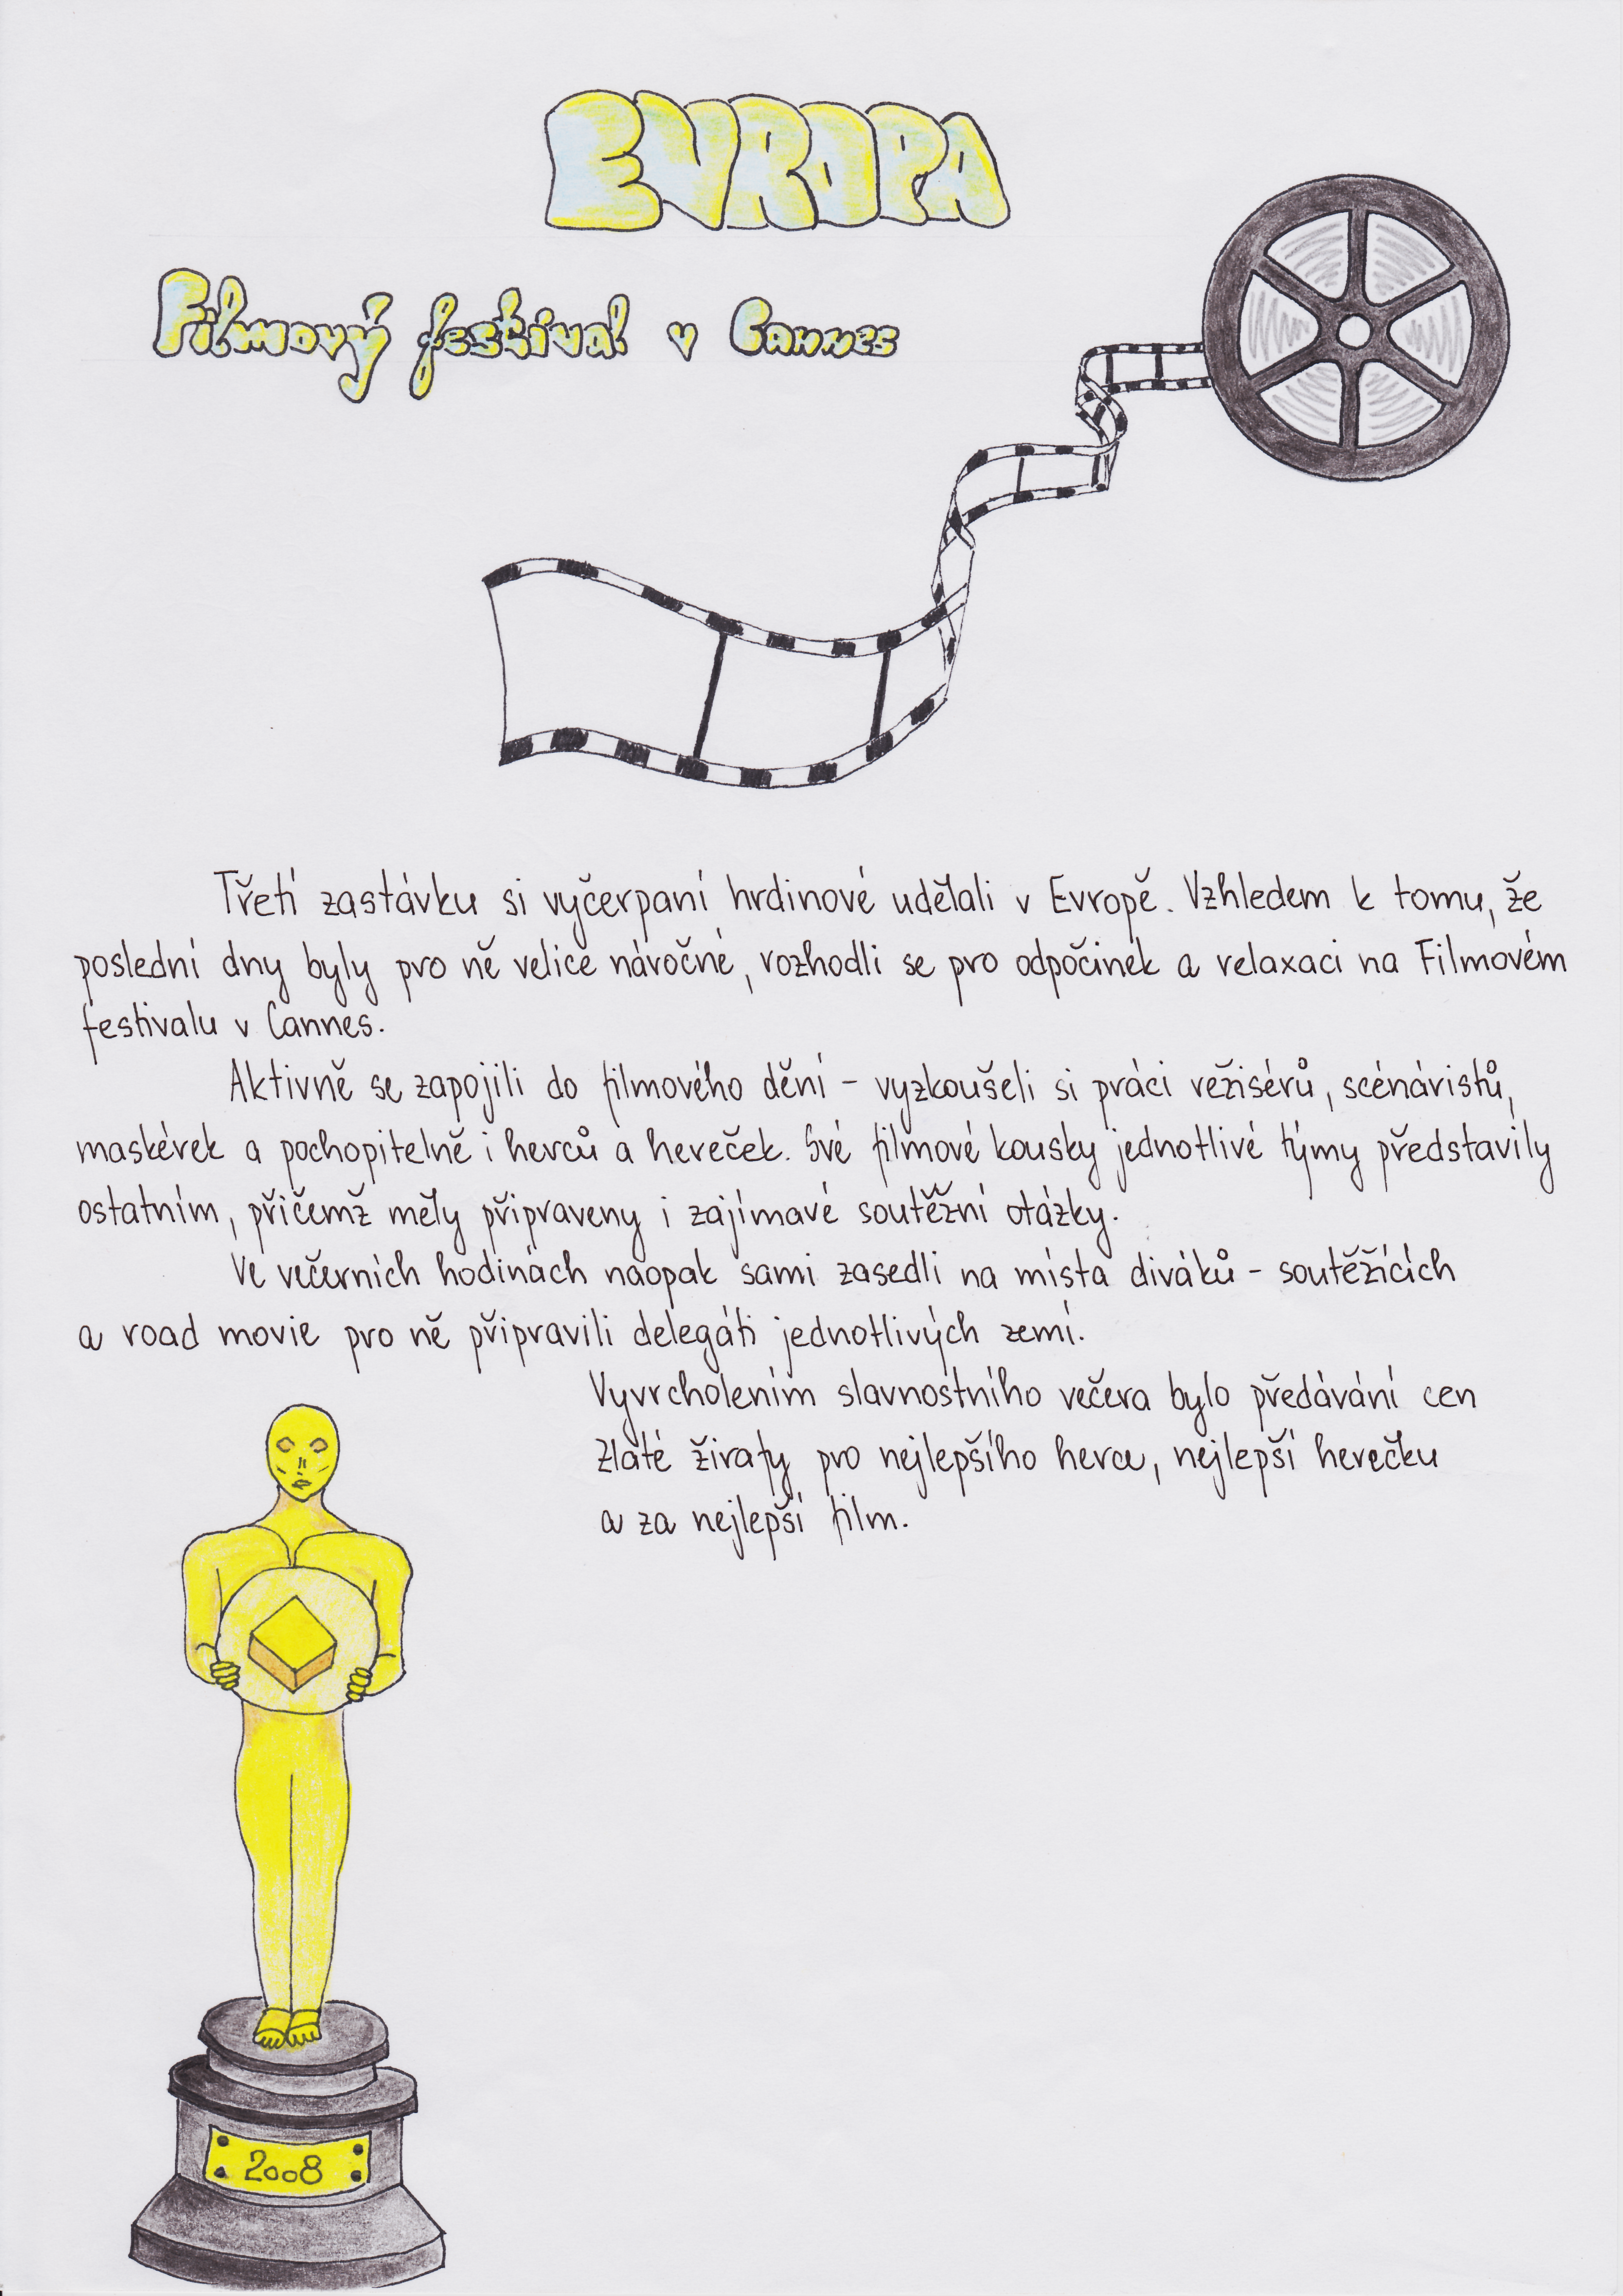 EVROPA
Filmový festival v Cannes
Třetí zastávku si vyčerpaní hrdinové udělali v Evropě. Vzhledem k tomu, že
poslední dny byly pro ně velice náročné, rozhodli se pro odpočinek a relaxaci na Filmovém
festivalu v Cannes.
Aktivně se zapojili do filmového dění - vyzkoušeli si práci režisérů, scénáristů,
maskérek a pochopitelně i herců a hereček. Své filmové kousky jednotlivé týmy představily
ostatním, přičemž měly připraveny i zajímavé soutěžní otázky.
Ve večerních hodinách naopak sami zasedli na místa diváků - soutěžících
a road movie pro ně připravili delegáti jednotlivých zemí.
Vyvrcholením slavnostního večera bylo předávání cen
Zlaté žirafy pro nejlepšího herce, nejlepší herečku
a za nejlepší film.
2008